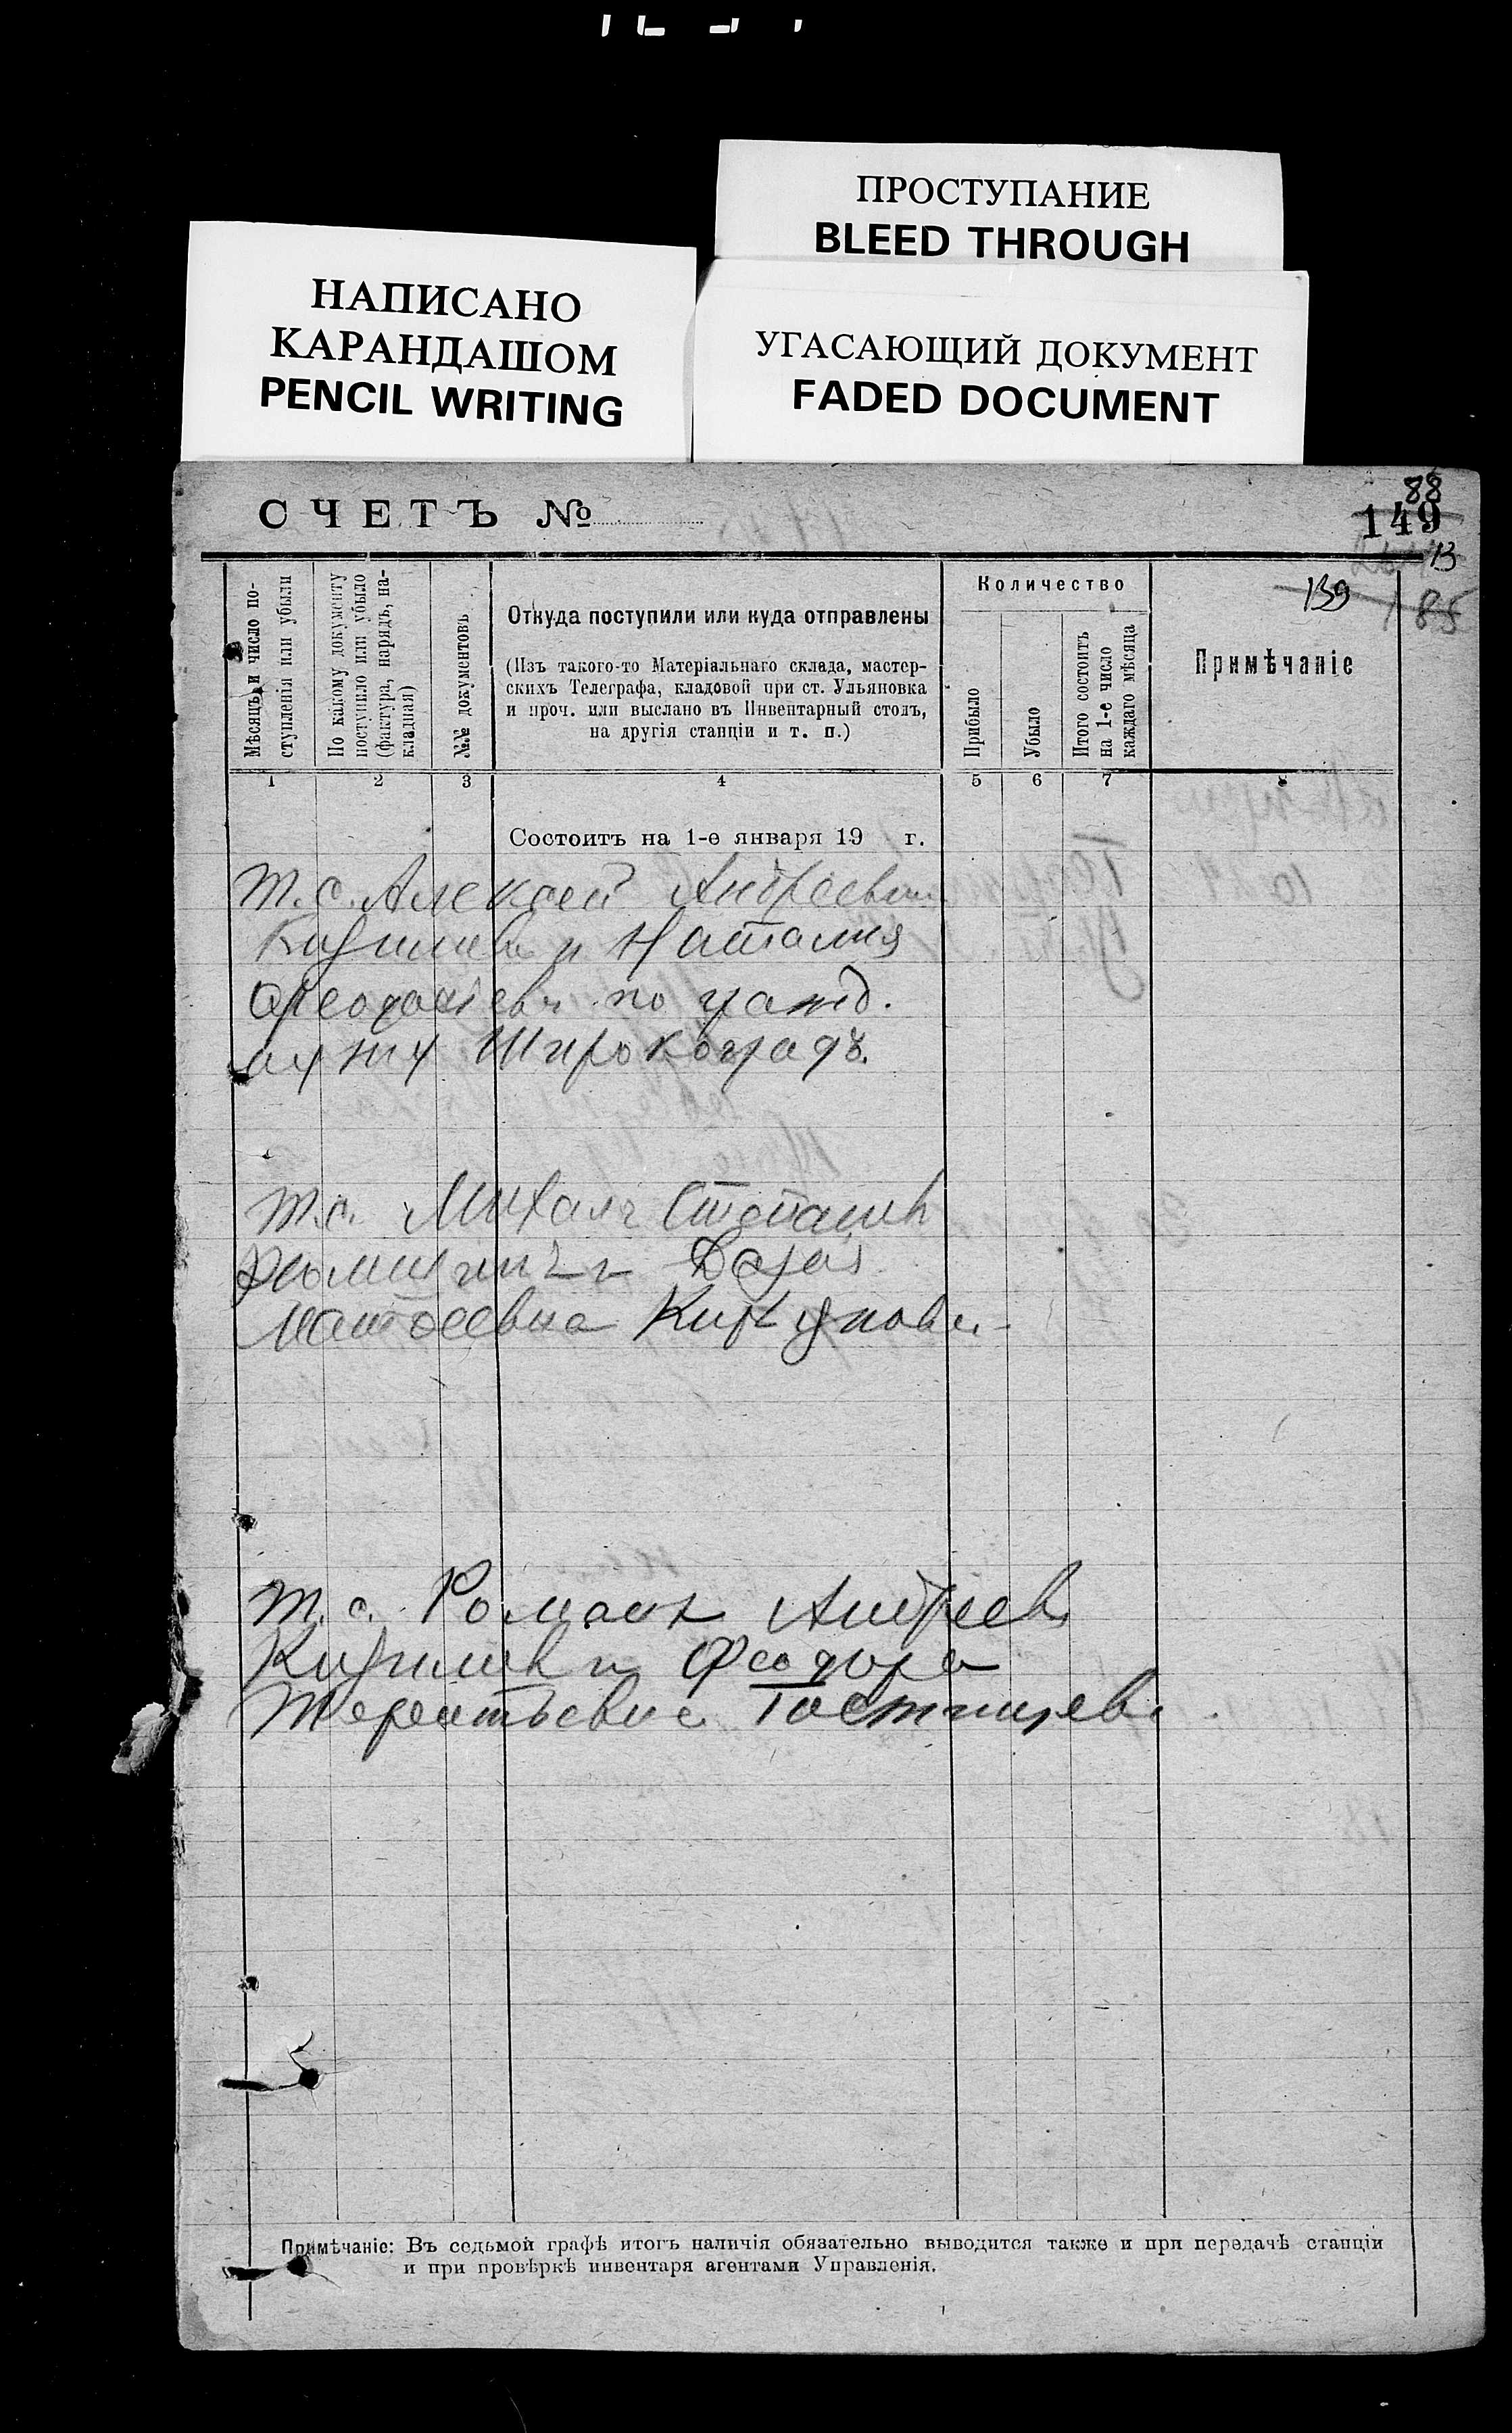 ПРОСТУПАНИЕ
BLEED THROUGH
НАПИСАНО
КАРАНДАШОМ
PENCIL WRITING
УГАСАЮЩИЙ ДОКУМЕНТ
FADED DOCUMENT
СЧЕТЪ №
88
149
139
85
Мѣсяцъ и число по-
ступленія или убыли
По какому документу
поступило или убыло
(фактура, нарядъ, на-
кладная)
№№ документовъ
Откуда поступили или куда отправлены
(Изъ такого-то Матеріальнаго склада, мастер-
скихъ Телеграфа, кладовой при ст. Ульяновка
и проч. или выслано въ Инвентарный столъ,
на другія станціи и т. п.)
Количество
Прибыло
Убыло
Итого состоитъ
на 1-е число
каждаго мѣсяца
Примѣчаніе
1 2 3 4 5 6 7 8
Состоитъ на 1-е января 19 г.
Т.с. Алексей Андреевич
и Наталия
по гражд.
мужу Широкоградъ.
Т.с. Михаил
Дарья
Матфеевна
Т.с. Романъ Андреев
и Феодора
Терентьевна
Примѣчаніе: Въ седьмой графѣ итогъ наличія обязательно выводится также и при передачѣ станціи
и при провѣркѣ инвентаря агентами Управленія.